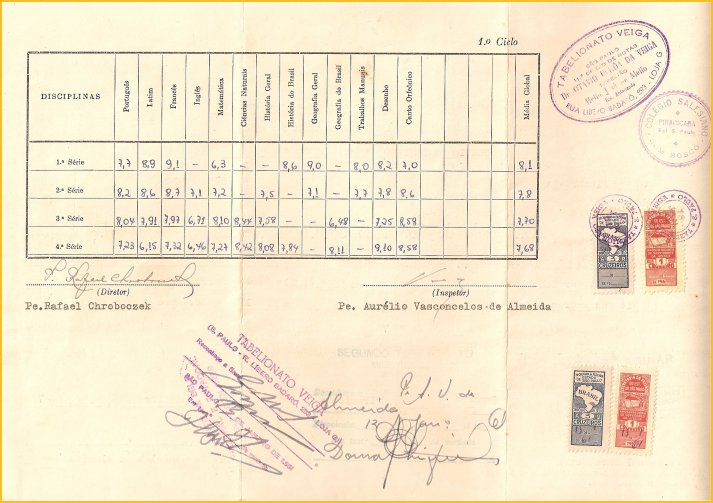 1.º Ciclo
DISCIPLINAS Português Latim Francês Inglês Matemática Ciências Naturais História Geral História do Brasil Geografia Geral Geografia do Brasil Trabalhos Manuais Desenho Canto Orfeônico Média Global
1.ª Série 7,7 8,9 9,1 – 6,3 – – 8,6 9,0 – 8,0 8,2 7,0 8,1
2.ª Série 8,2 8,6 8,7 7,1 7,2 – 7,5 – 7,1 – 7,7 7,8 8,6 7,8
3.ª Série 8,04 7,91 7,97 6,71 8,10 8,44 7,58 – – 6,48 – 7,25 8,58 7,70
4.ª Série 7,23 6,15 7,32 6,46 7,27 8,42 8,08 7,84 – 8,11 – 9,10 8,58 7,68
(Diretor)
Pe.Rafael Chroboczek
(Inspetôr)
Pe. Aurélio Vasconcelos de Almeida
TABELIONATO VEIGA
SÃO PAULO
RUA LIBERO BADARÓ, LOJA G
COLÉGIO SALESIANO
PIRACICABA
Est. S. Paulo
DOM BOSCO
5
CRUZEIROS
1
TABELIONATO VEIGA
(S. PAULO - R. LIBERO BADARÓ, LOJA G)
SÃO PAULO
P. A. V. de
Almeida
BRASIL
5
CRUZEIROS
1